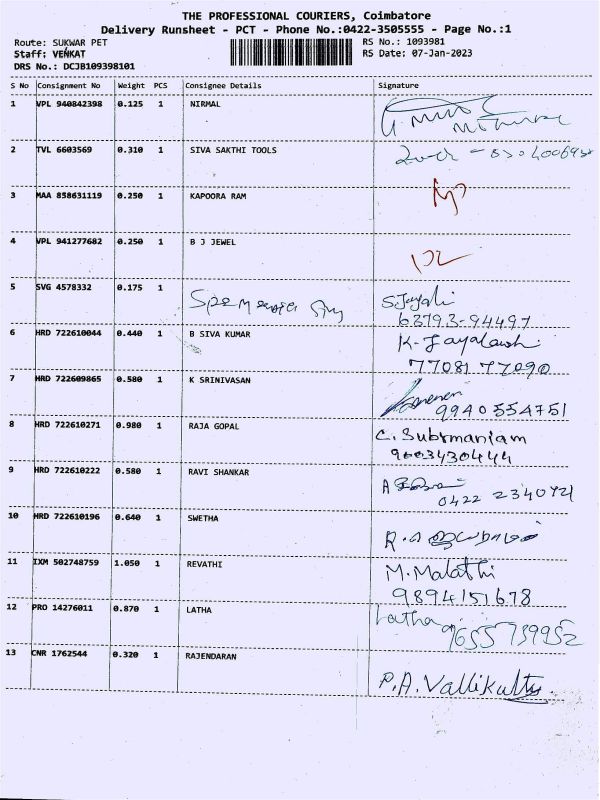 THE PROFESSIONAL COURIERS, Coimbatore
Delivery Runsheet - PCT - Phone No.:0422-3505555 - Page No.:1
Route: SUKWAR PET RS No.: 1093981
Staff: VENKAT RS Date: 07-Jan-2023
DRS No.: DCJB109398101
S No Consignment No Weight PCS Consignee Details Signature
1 VPL 940842398 0.125 1 NIRMAL
2 TVL 6603569 0.310 1 SIVA SAKTHI TOOLS
3 MAA 858631119 0.250 1 KAPOORA RAM
4 VPL 941277682 0.250 1 B J JEWEL
5 SVG 4578332 0.175 1 S.Jayali
63793-94497
6 HRD 722610044 0.440 1 B SIVA KUMAR K-
77081 77090
7 HRD 722609865 0.580 1 K SRINIVASAN
9940554751
8 HRD 722610271 0.980 1 RAJA GOPAL C. Subrmaniam
9003430444
9 HRD 722610222 0.580 1 RAVI SHANKAR
0422 2340721
10 HRD 722610196 0.640 1 SWETHA
11 IXM 502748759 1.050 1 REVATHI M. Malathi
9894151678
12 PRO 14276011 0.870 1 LATHA Latha
9655739952
13 CNR 1762544 0.320 1 RAJENDARAN P.A. Vallikutty